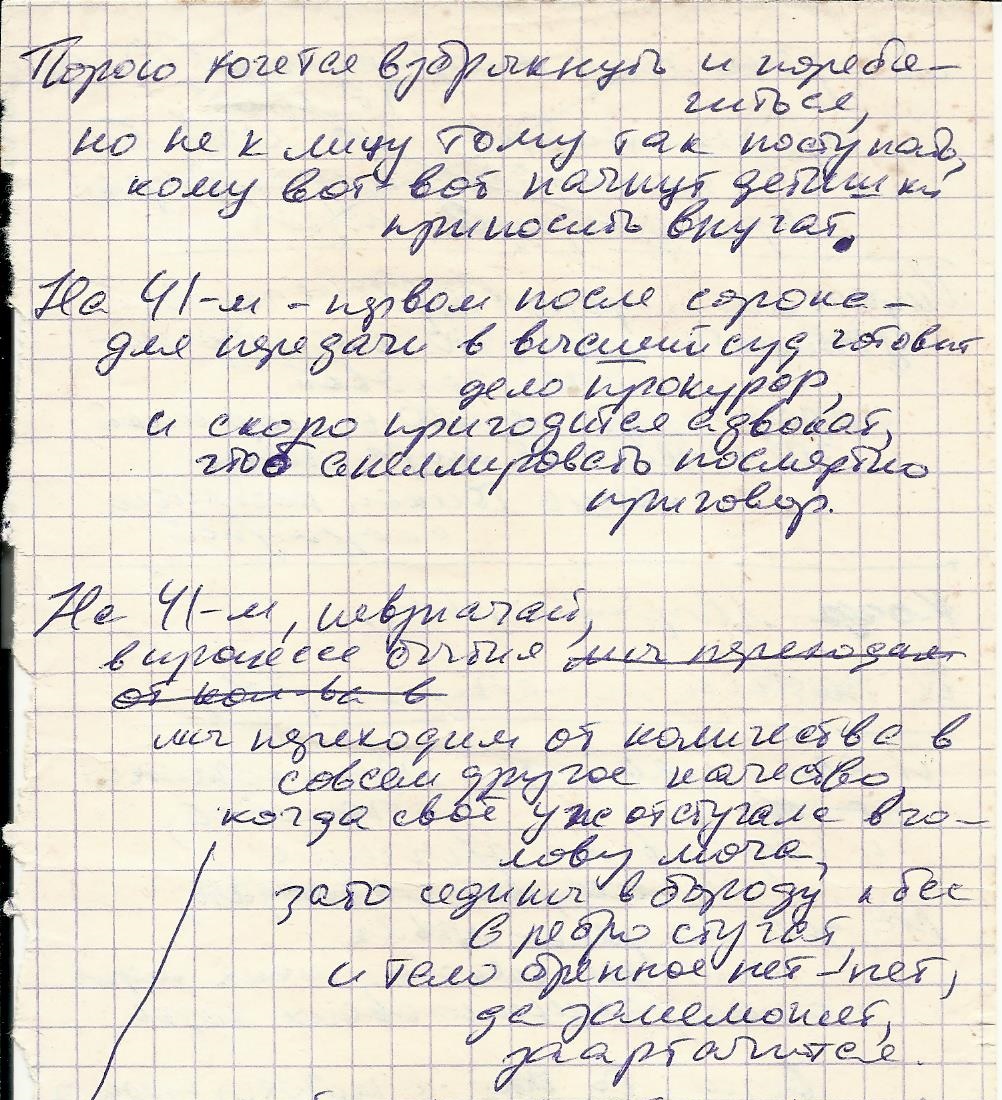 Порою хочется взбрыкнуть и поребя-
читься,
но не к лицу тому так поступать,
кому вот-вот начнут детишки
приносить внучат.
На 41-м - первом после сорока -
для передачи в высший суд готовит
дело прокурор,
и скоро пригодится адвокат,
чтоб апеллировать посмертно
приговор.
На 41-м, невзначай,
в процессе бытия мы переходим
от кол-ва в
мы переходим от количества в
совсем другое качество,
когда своё уж отстучала в го-
лову моча,
зато седины в бороду и бес
в ребро стучат,
и тело бренное нет-нет,
да занеможет,
заартачится.